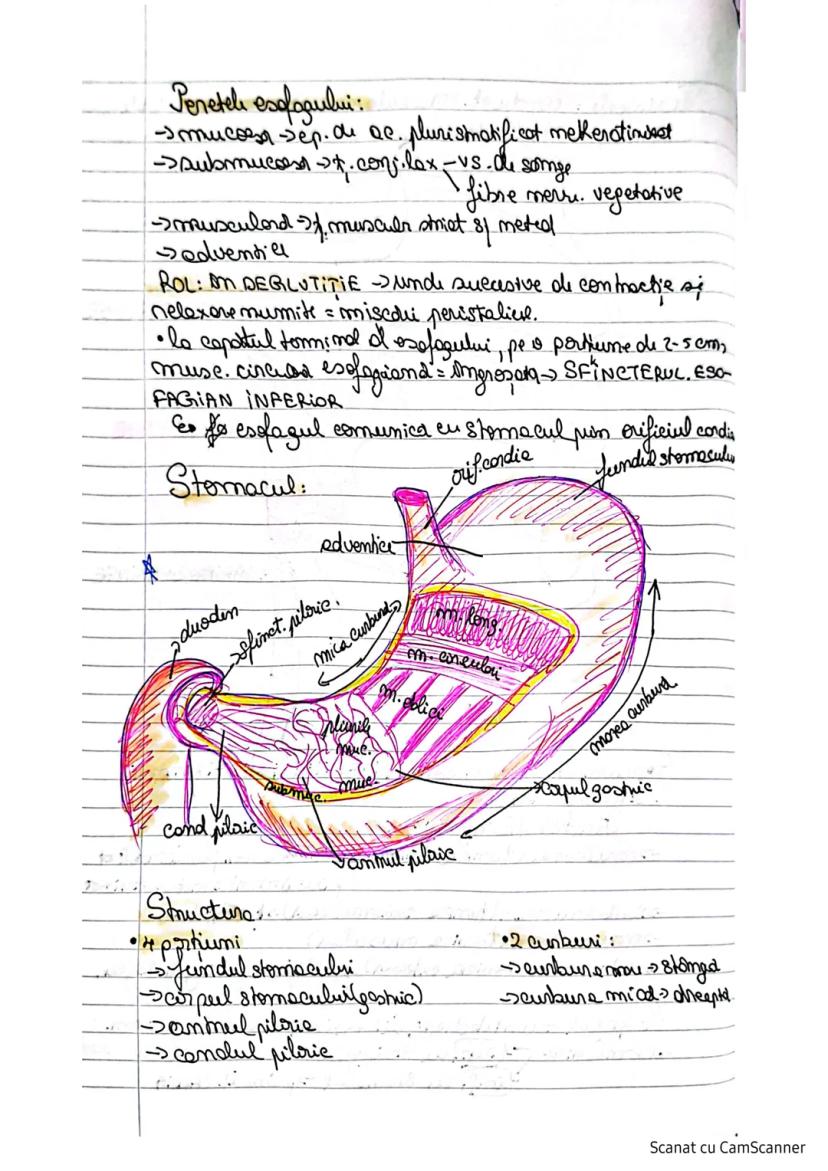 Peretele esofagului:
→ mucoasa → ep. de ac. pluristratificat nekeratinizat
→ submucoasa → ț. conj. lax – vs. de sânge
fibre nerv. vegetative
→ musculară → ț. muscular striat și neted
→ adventice
ROL: ÎN DEGLUTIȚIE → unde succesive de contracție și
relaxare numite = mișcări peristaltice.
• la capătul terminal al esofagului, pe o porțiune de 2-5 cm,
musc. circulară esofagiană = îngroșată → SFINCTERUL ESO-
FAGIAN INFERIOR
esofagul comunică cu stomacul prin orificiul cardia
Stomacul:
orif. cardia
fundul stomacului
adventice
duoden
sfinct. piloric.
mica curbură
m. long.
m. circulari
m. oblici
pliurile
muc.
muc.
submuc.
marea curbură
corpul gastric
canal piloric
antrul piloric
Structura:
• 4 porțiuni
→ fundul stomacului
→ corpul stomacului (gastric)
→ antrul piloric
→ canalul piloric
• 2 curburi:
→ curbura mare → stânga
→ curbura mică → dreapta
Scanat cu CamScanner